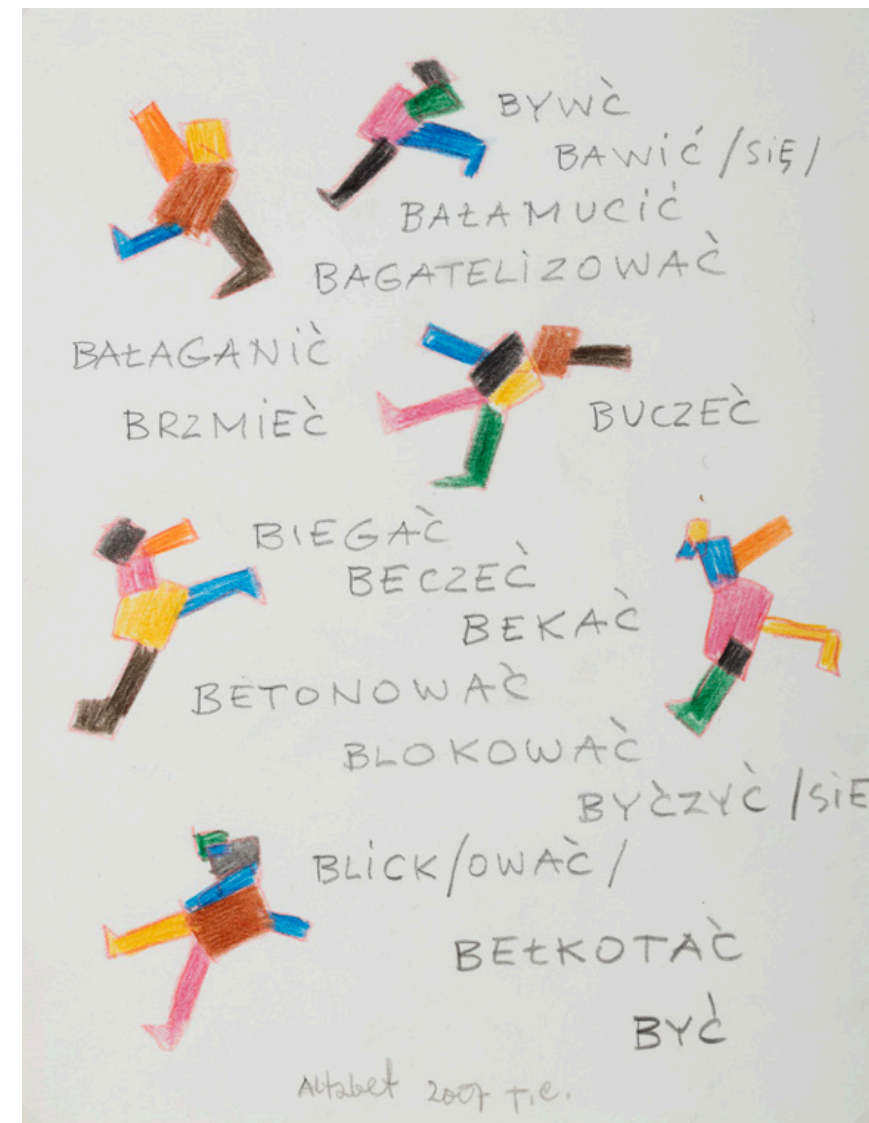 BYWÈ
BAWIĆ /SIĘ/
BAŁAMUCIĆ
BAGATELIZOWAC̀
BAŁAGANIC̀
BRZMIEC̀
BUCZEC̀
BIEGAC̀
BECZEC̀
BEKAC̀
BETONOWAC̀
BLOKOWAC̀
BYC̀ZYC̀ /SIE
BLICK/OWAC̀/
BEŁKOTAC̀
BYC̀
Alfabet 2007 T.C.